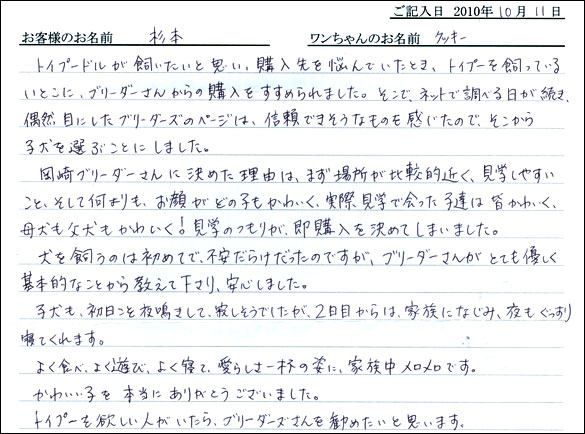 ご記入日 2010年10月11日
お客様のお名前 杉本 ワンちゃんのお名前 クッキー
トイプードルが飼いたいと思い、購入先を悩んでいたとき、トイプーを飼っている
いとこに、ブリーダーさんからの購入をすすめられました。そこで、ネットで調べる日が続き、
偶然目にしたブリーダーズのページは、信頼できそうなものを感じたので、そこから
子犬を選ぶことにしました。
岡崎ブリーダーさんに決めた理由は、まず場所が比較的近く、見学しやすい
こと、そして何よりも、お顔がどの子もかわいく、実際見学で会った子達は皆かわいく、
母犬も父犬もかわいく!見学のつもりが、即購入を決めてしまいました。
犬を飼うのは初めてで、不安だらけだったのですが、ブリーダーさんがとても優しく
基本的なことから教えて下さり、安心しました。
子犬も、初日こそ夜鳴きして、寂しそうでしたが、2日目からは、家族になじみ、夜もぐっすり
寝てくれます。
よく食べ、よく遊び、よく寝て、愛らしさ一杯の姿に、家族中メロメロです。
かわいい子を本当にありがとうございました。
トイプーを欲しい人がいたら、ブリーダーズさんを勧めたいと思います。